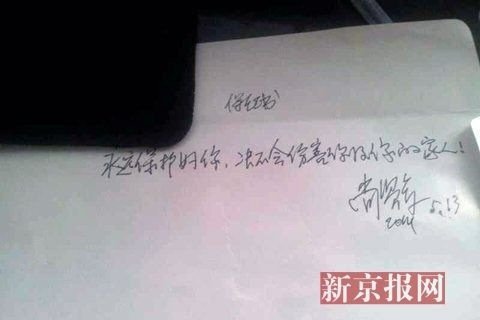 保证书
永远保护好你，决不会伤害你及你的家人！
2014 5.13
新京报网